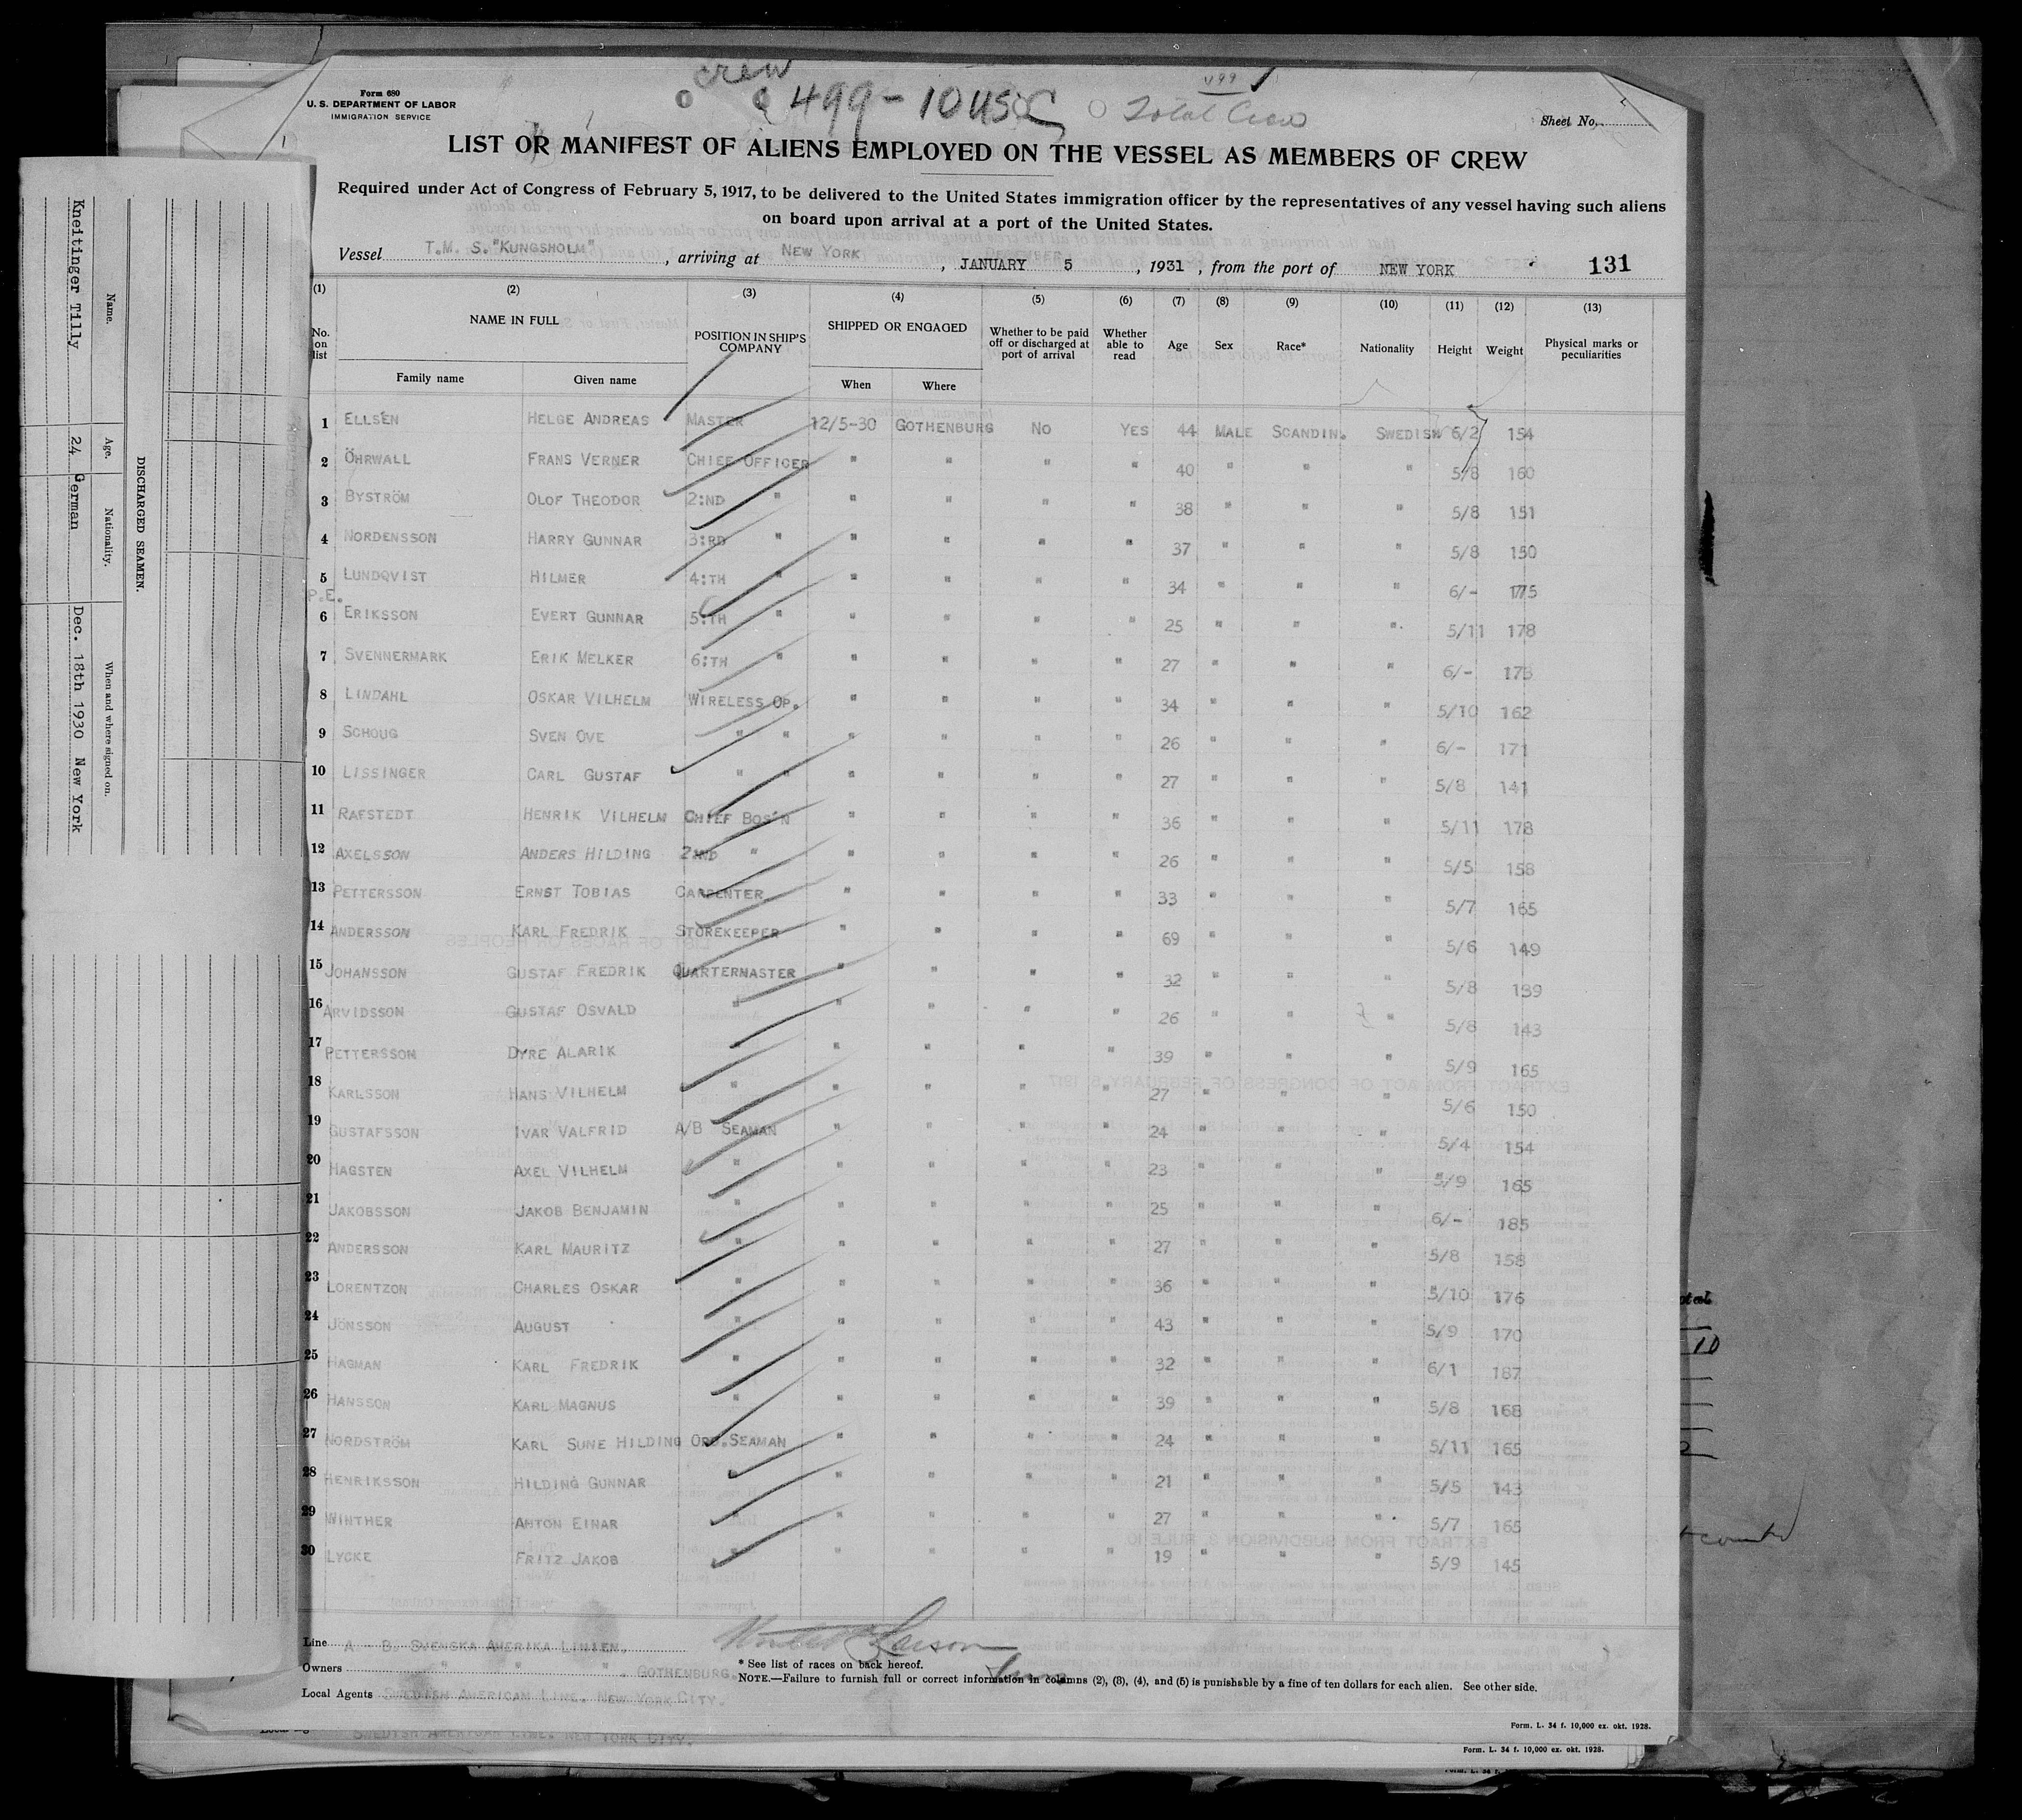 crew
499 - 10 USC
499
Total Crew
Form 680
U. S. DEPARTMENT OF LABOR
IMMIGRATION SERVICE
Sheet No.
LIST OR MANIFEST OF ALIENS EMPLOYED ON THE VESSEL AS MEMBERS OF CREW
Required under Act of Congress of February 5, 1917, to be delivered to the United States immigration officer by the representatives of any vessel having such aliens
on board upon arrival at a port of the United States.
Vessel T.M. S. "KUNGSHOLM", arriving at NEW YORK, JANUARY 5, 1931, from the port of NEW YORK 131
(1) (2) (3) (4) (5) (6) (7) (8) (9) (10) (11) (12) (13)
No. on list NAME IN FULL Family name Given name POSITION IN SHIP'S COMPANY SHIPPED OR ENGAGED When Where Whether to be paid off or discharged at port of arrival Whether able to read Age Sex Race* Nationality Height Weight Physical marks or peculiarities
1 ELLSÉN HELGE ANDREAS MASTER 12/5-30 GOTHENBURG NO YES 44 MALE SCANDIN. SWEDISH 6/2 154
2 ÖHRWALL FRANS VERNER CHIEF OFFICER " " " " 40 " " " 5/8 160
3 BYSTRÖM OLOF THEODOR 2:ND " " " " " 38 " " " 5/8 151
4 NORDENSSON HARRY GUNNAR 3:RD " " " " " 37 " " " 5/8 150
5 LUNDQVIST HILMER 4:TH " " " " " 34 " " " 6/- 175
P.E.
6 ERIKSSON EVERT GUNNAR 5:TH " " " " " 25 " " " 5/11 178
7 SVENNERMARK ERIK MELKER 6:TH " " " " " 27 " " " 6/- 173
8 LINDAHL OSKAR VILHELM WIRELESS OP. " " " " 34 " " " 5/10 162
9 SCHOUG SVEN OVE " " " " " " 26 " " " 6/- 171
10 LISSINGER CARL GUSTAF " " " " " " 27 " " " 5/8 141
11 RAFSTEDT HENRIK VILHELM CHIEF BOS'N " " " " 36 " " " 5/11 178
12 AXELSSON ANDERS HILDING 2:ND " " " " " 26 " " " 5/5 158
13 PETTERSSON ERNST TOBIAS CARPENTER " " " " 33 " " " 5/7 165
14 ANDERSSON KARL FREDRIK STOREKEEPER " " " " 69 " " " 5/6 149
15 JOHANSSON GUSTAF FREDRIK QUARTERMASTER " " " " 32 " " " 5/8 139
16 ARVIDSSON GUSTAF OSVALD " " " " " 26 " " " 5/8 143
17 PETTERSSON DYRE ALARIK " " " " 39 " " " 5/9 165
18 KARLSSON HANS VILHELM " " " " " 27 " " " 5/6 150
19 GUSTAFSSON IVAR VALFRID A/B SEAMAN " " " " 24 " " " 5/4 154
20 HAGSTEN AXEL VILHELM " " " " " 23 " " " 5/9 165
21 JAKOBSSON JAKOB BENJAMIN " " " " " 25 " " " 6/- 185
22 ANDERSSON KARL MAURITZ " " " " " 27 " " " 5/8 158
23 LORENTZON CHARLES OSKAR " " " " " 36 " " " 5/10 176
24 JÖNSSON AUGUST " " " " " 43 " " " 5/9 170
25 HAGMAN KARL FREDRIK " " " " " 32 " " " 6/1 187
26 HANSSON KARL MAGNUS " " " " 39 " " " 5/8 168
27 NORDSTRÖM KARL SUNE HILDING ORD.SEAMAN " " " " 24 " " " 5/11 165
28 HENRIKSSON HILDING GUNNAR " " " " 21 " " " 5/5 143
29 WINTHER ANTON EINAR " " " " " 27 " " " 5/7 165
30 LYCKE FRITZ JAKOB " " " " " 19 " " " 5/9 145
Line A - B. SVENSKA AMERIKA LINIEN.
Owners " " " . GOTHENBURG.
Local Agents SWEDISH AMERICAN LINE. NEW YORK CITY.
* See list of races on back hereof.
NOTE.—Failure to furnish full or correct information in columns (2), (3), (4), and (5) is punishable by a fine of ten dollars for each alien. See other side.
Form. L. 34 f. 10,000 ex. okt. 1928.
SWEDISH AMERICAN LINE. NEW YORK CITY.
Form. L. 34 f. 10,000 ex. okt. 1928.
DISCHARGED SEAMEN.
Name. Age. Nationality. When and where signed on.
Kneitinger Tilly 24 German Dec. 18th 1930 New York
10